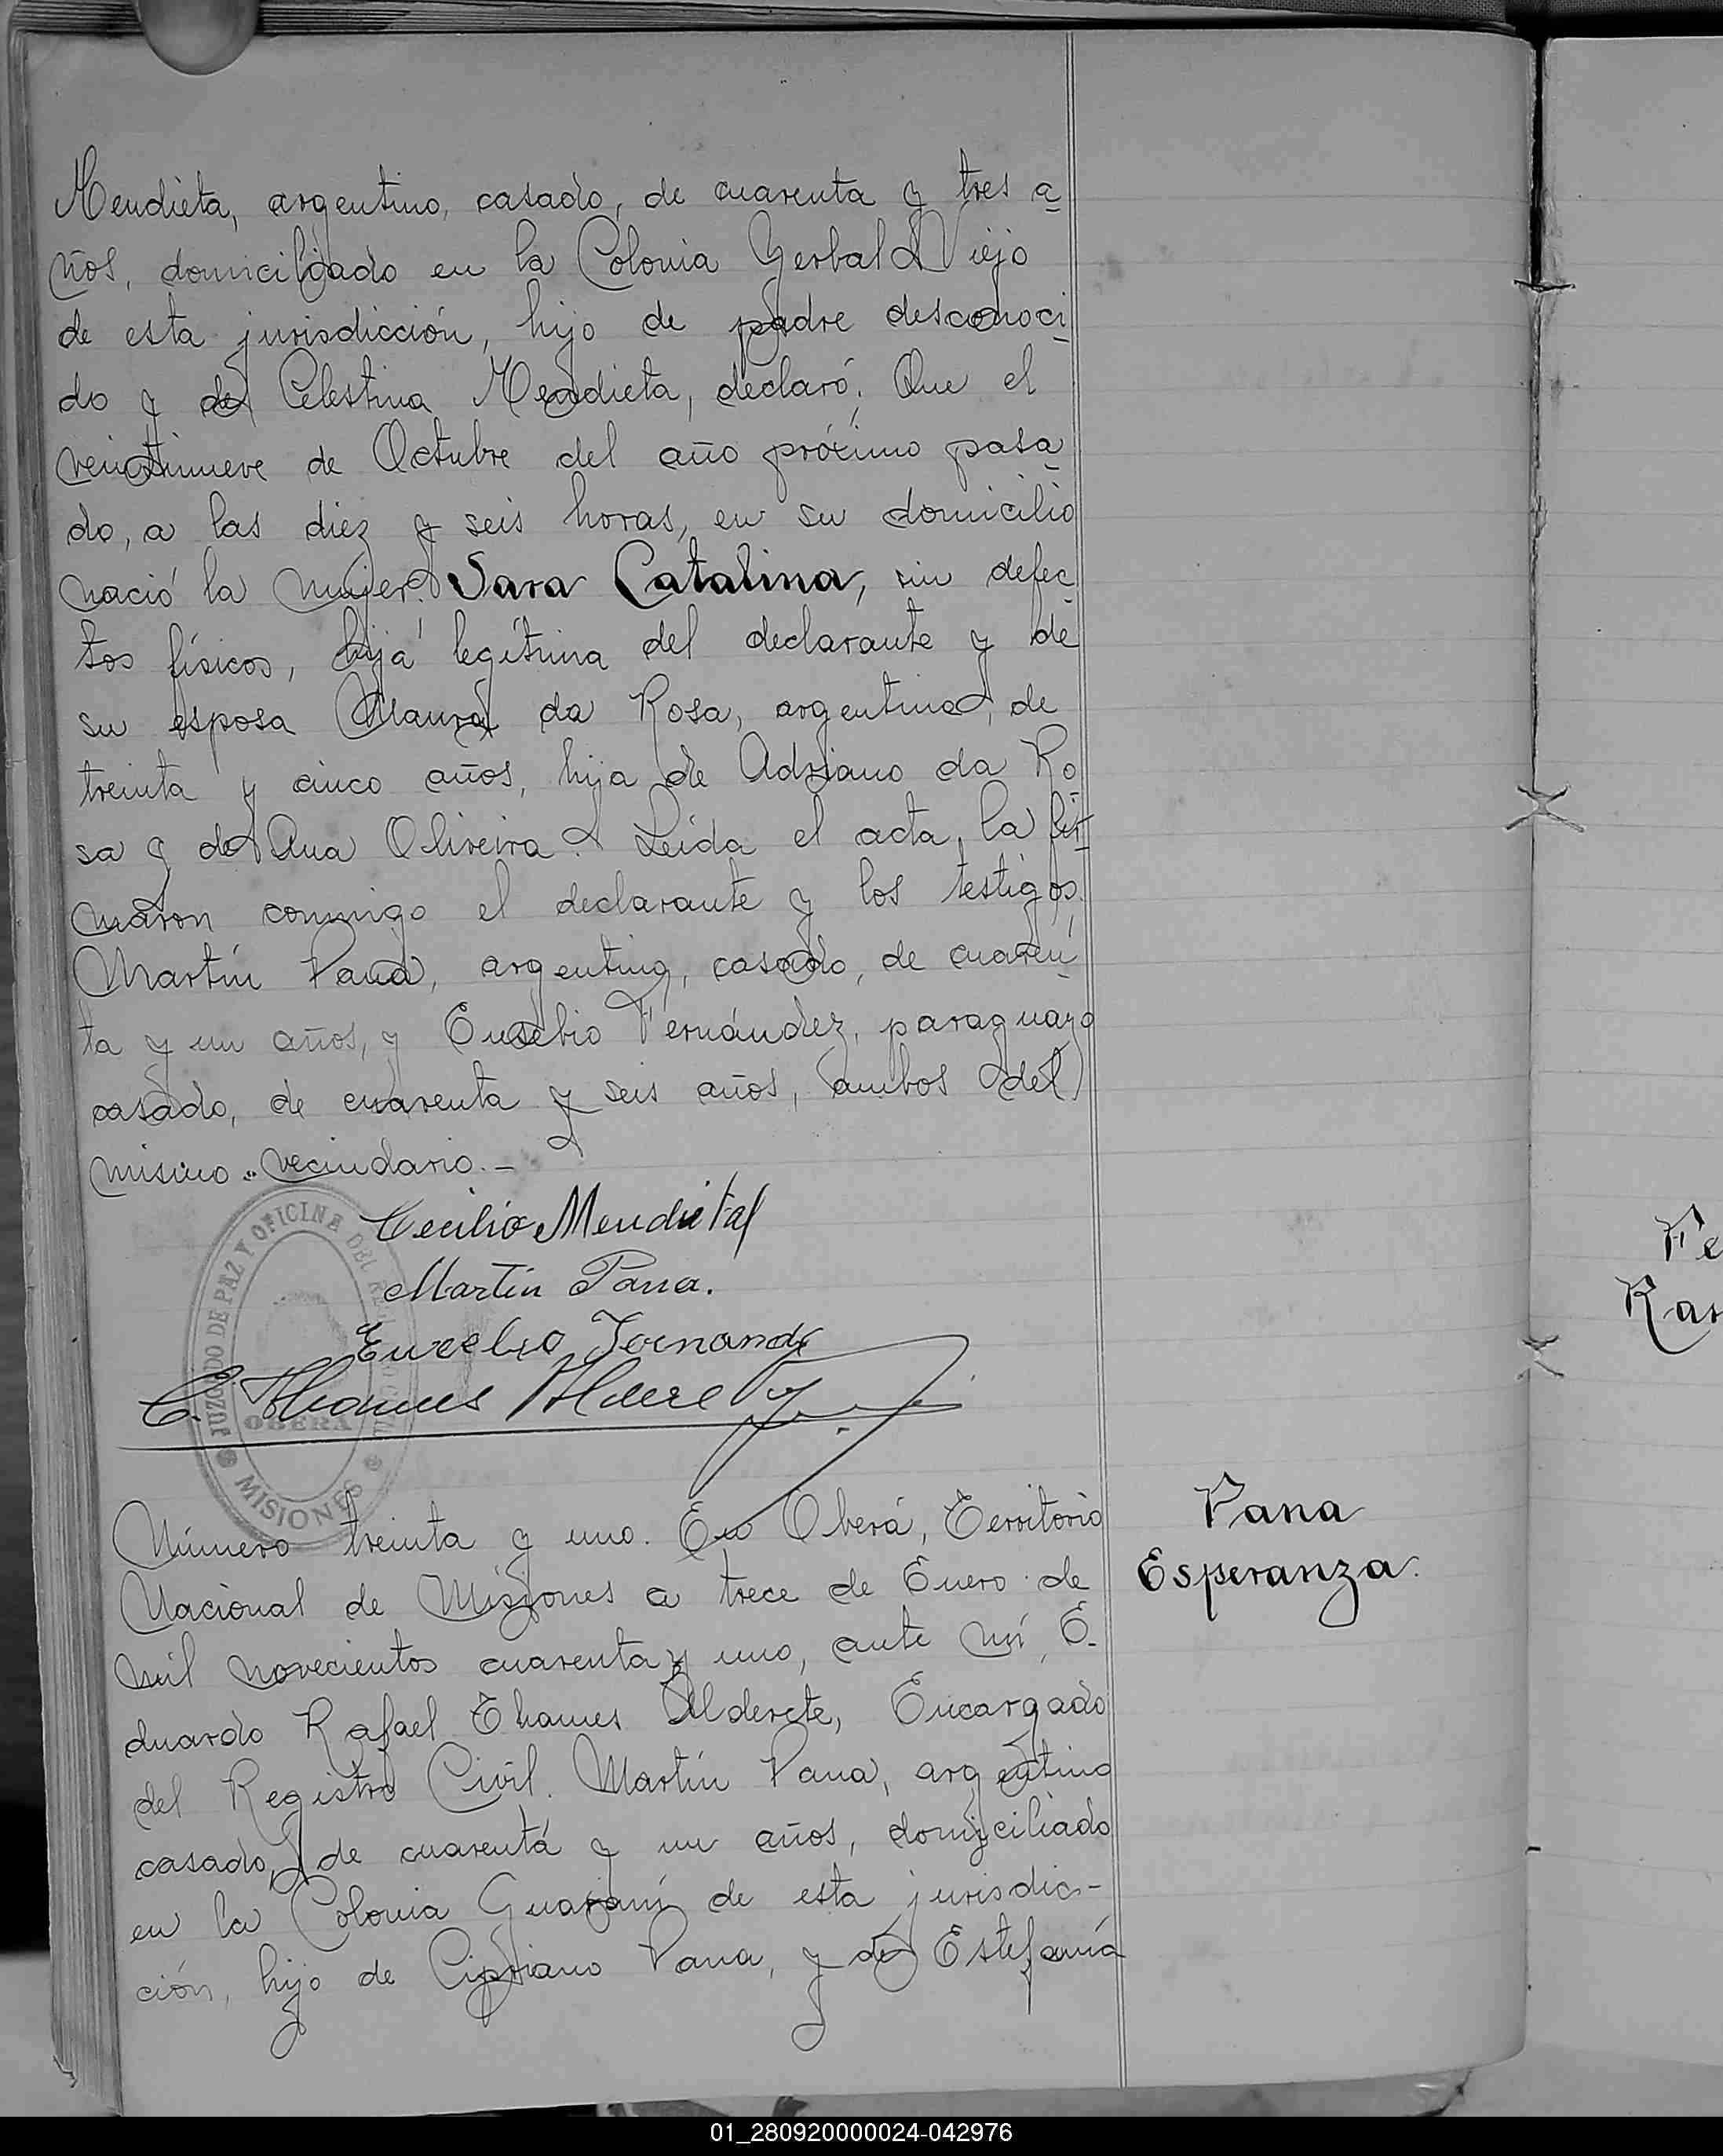 Mendieta, argentino, casado, de cuarenta y tres a
ños, domiciliado en la Colonia Yerbal Viejo
de esta jurisdicción, hijo de padre desconoci
do y de Celestina Mendieta, declaró: Que el
veintinueve de Octubre del año próximo pasa
do, a las diez y seis horas, en su domicilio
nació la mujer: Sara Catalina, sin defec
tos físicos, hija legítima del declarante y de
su esposa Maura da Rosa, argentina, de
treinta y cinco años, hija de Adriano da Ro
sa y de Ana Oliveira. Leída el acta, la fir
maron conmigo el declarante y los testigos:
Martín Pana, argentino, casado, de cuaren
ta y un años, y Eusebio Fernández, paraguayo
casado, de cuarenta y seis años, ambos del
mismo vecindario.-
JUZGADO DE PAZ Y OFICINA DEL
OBERÁ
MISIONES
Cecilio Mendieta
Martín Pana.
Eusebio Fernande
E. Thames Alderete
Número treinta y uno. En Oberá, Territorio
Nacional de Misiones a trece de Enero de
mil novecientos cuarenta y uno, ante mí, E-
duardo Rafael Thames Alderete, Encargado
del Registro Civil. Martín Pana, argentino
casado, de cuarenta y un años, domiciliado
en la Colonia Guaraní de esta jurisdic-
ción, hijo de Cipriano Pana, y de Estefanía
Pana
Esperanza.
Fe
Ra
01_280920000024-042976